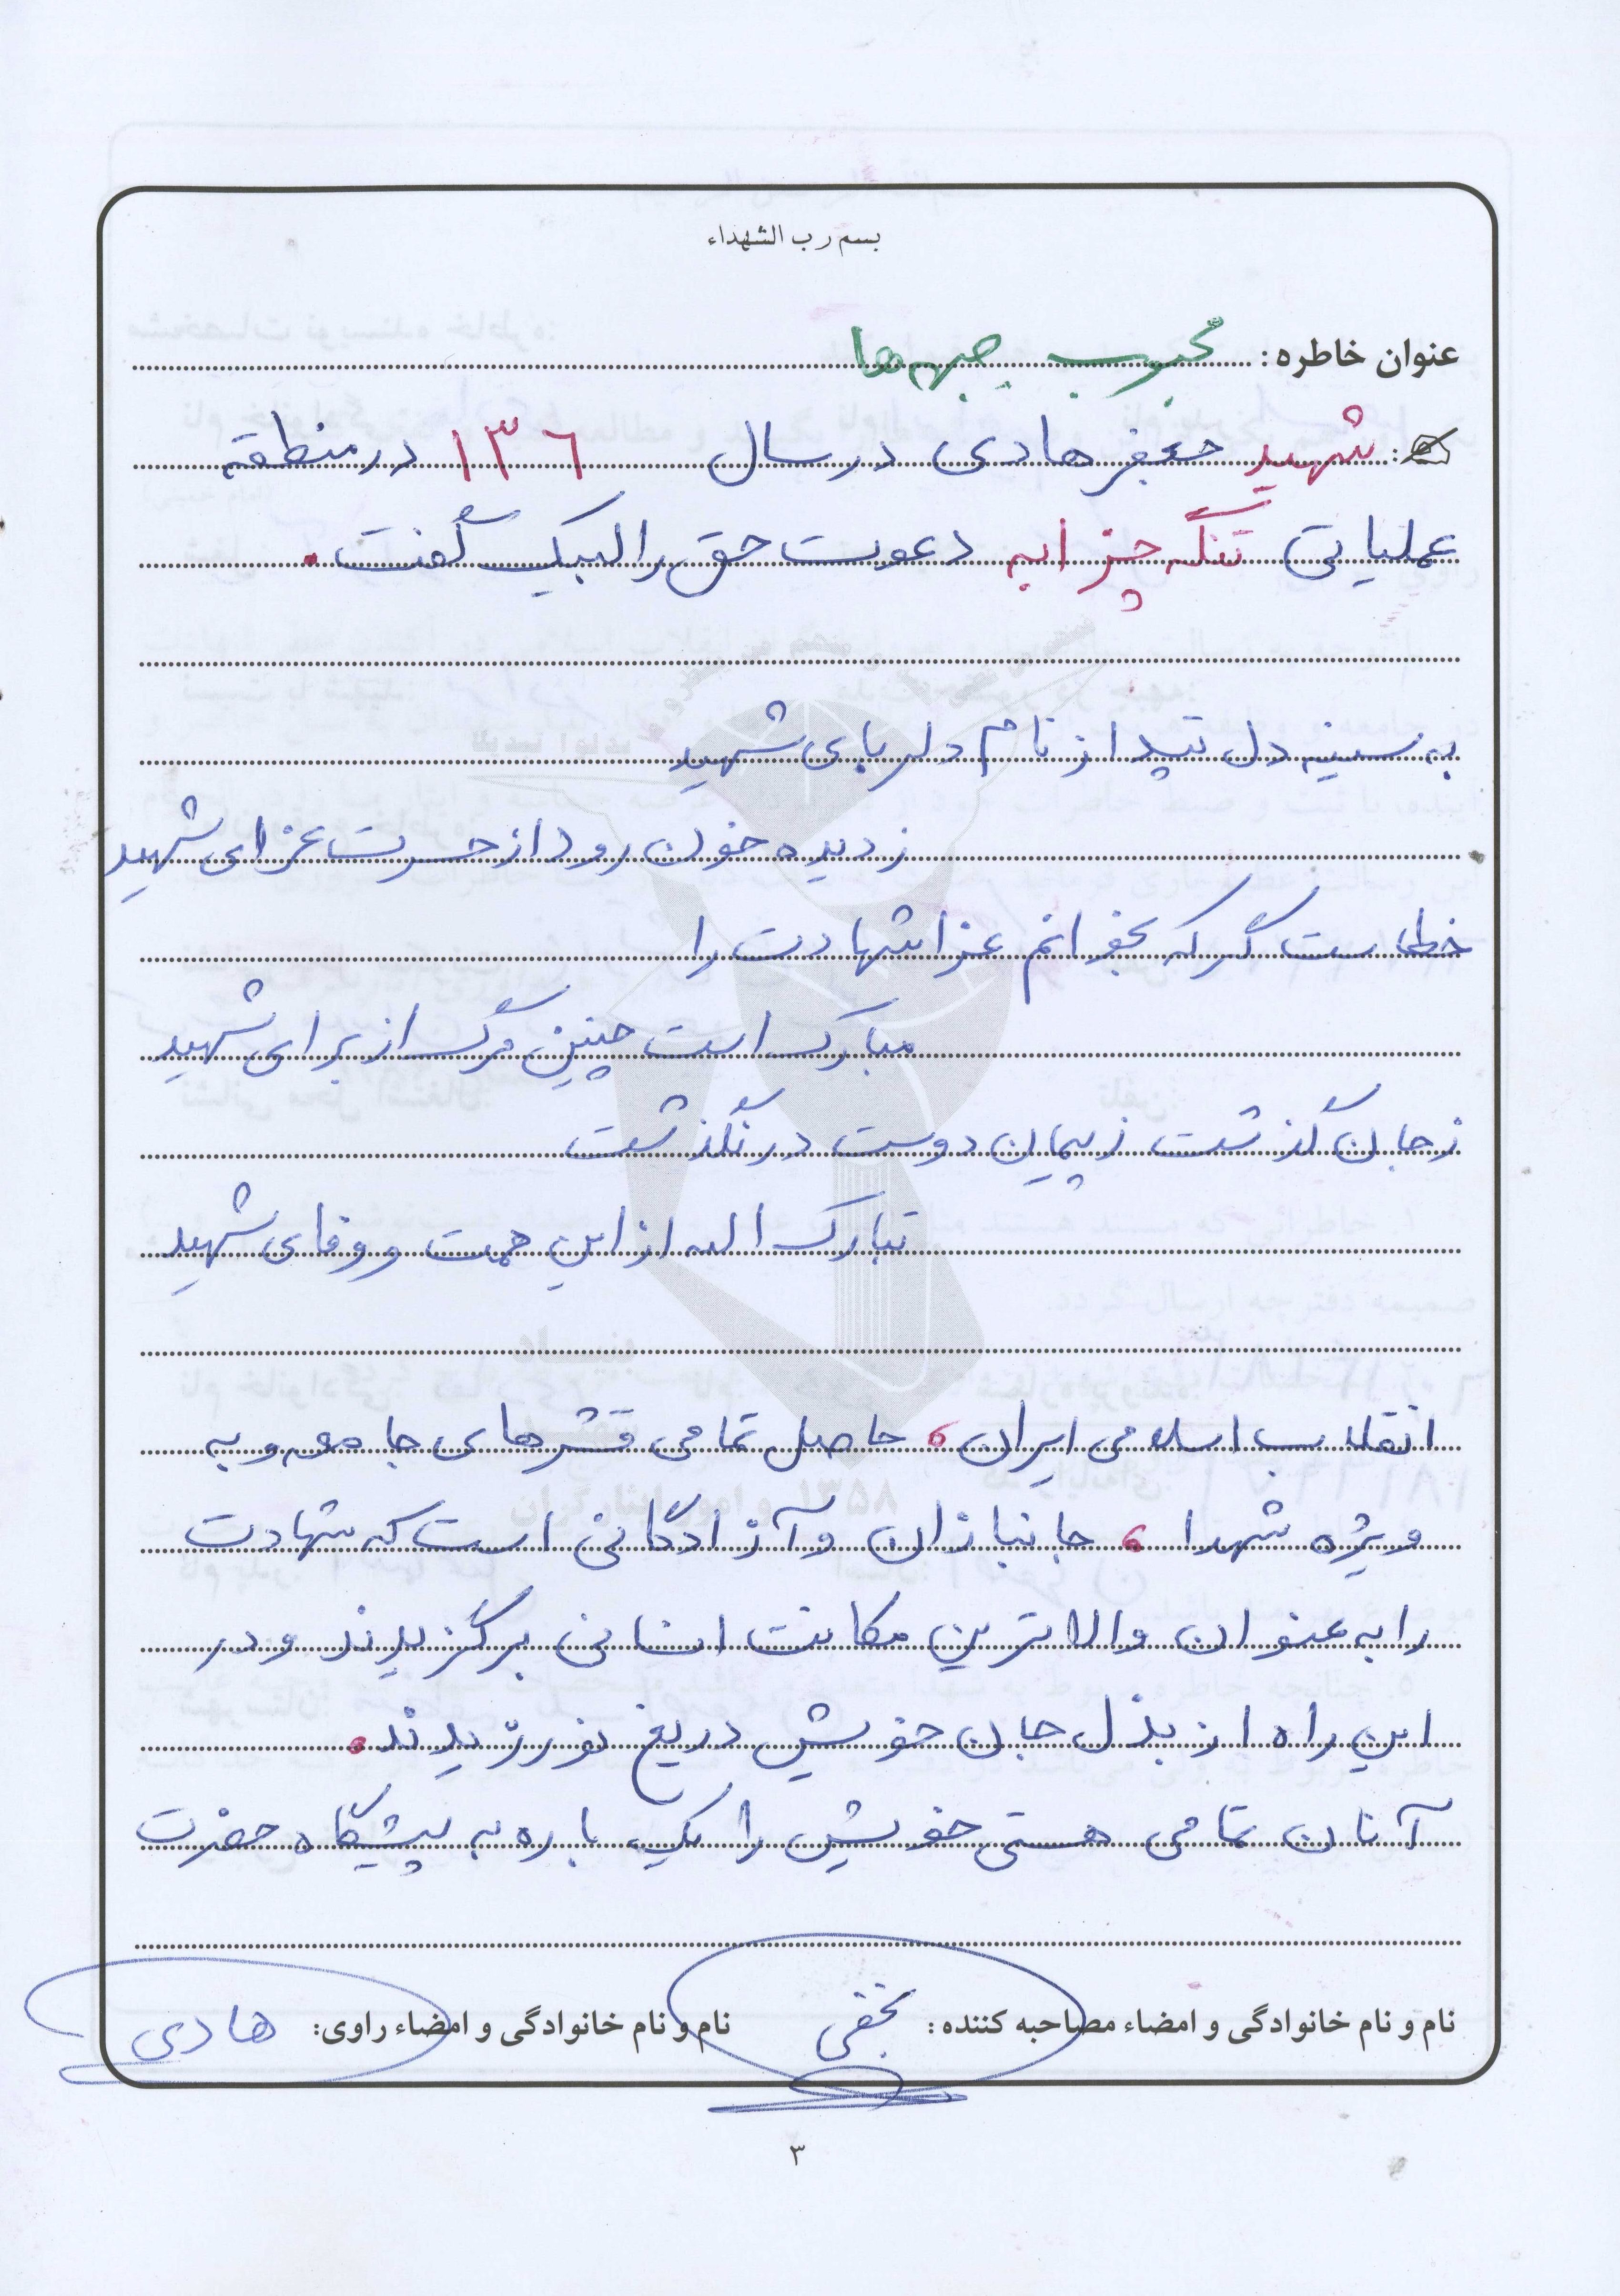 بسم رب الشهداء
عنوان خاطره: محبوب جبهه‌ها
شهید جعفر هادی در سال ۱۳۶ در منطقه
عملیاتی تنگه چزابه دعوت حق را لبیک گفت.
به سینه دل تپد از نام دلربای شهید
ز دیده خون رود از حسرت عزای شهید
خطاست گر که بخوانم عزا شهادت را
مبارک است چنین مرگ از برای شهید
ز جان گذشت ز پیمان دوست در نگذشت
تبارک الله از این همت و وفای شهید
انقلاب اسلامی ایران، حاصل تمامی قشرهای جامعه و به
ویژه شهدا، جانبازان و آزادگانی است که شهادت
را به عنوان والاترین مکانت انسانی برگزیدند و در
این راه از بذل جان خویش دریغ نورزیدند.
آنان تمامی هستی خویش را یک باره به پیشگاه حضرت
نام و نام خانوادگی و امضاء مصاحبه کننده: نام و نام خانوادگی و امضاء راوی: هادی
۳